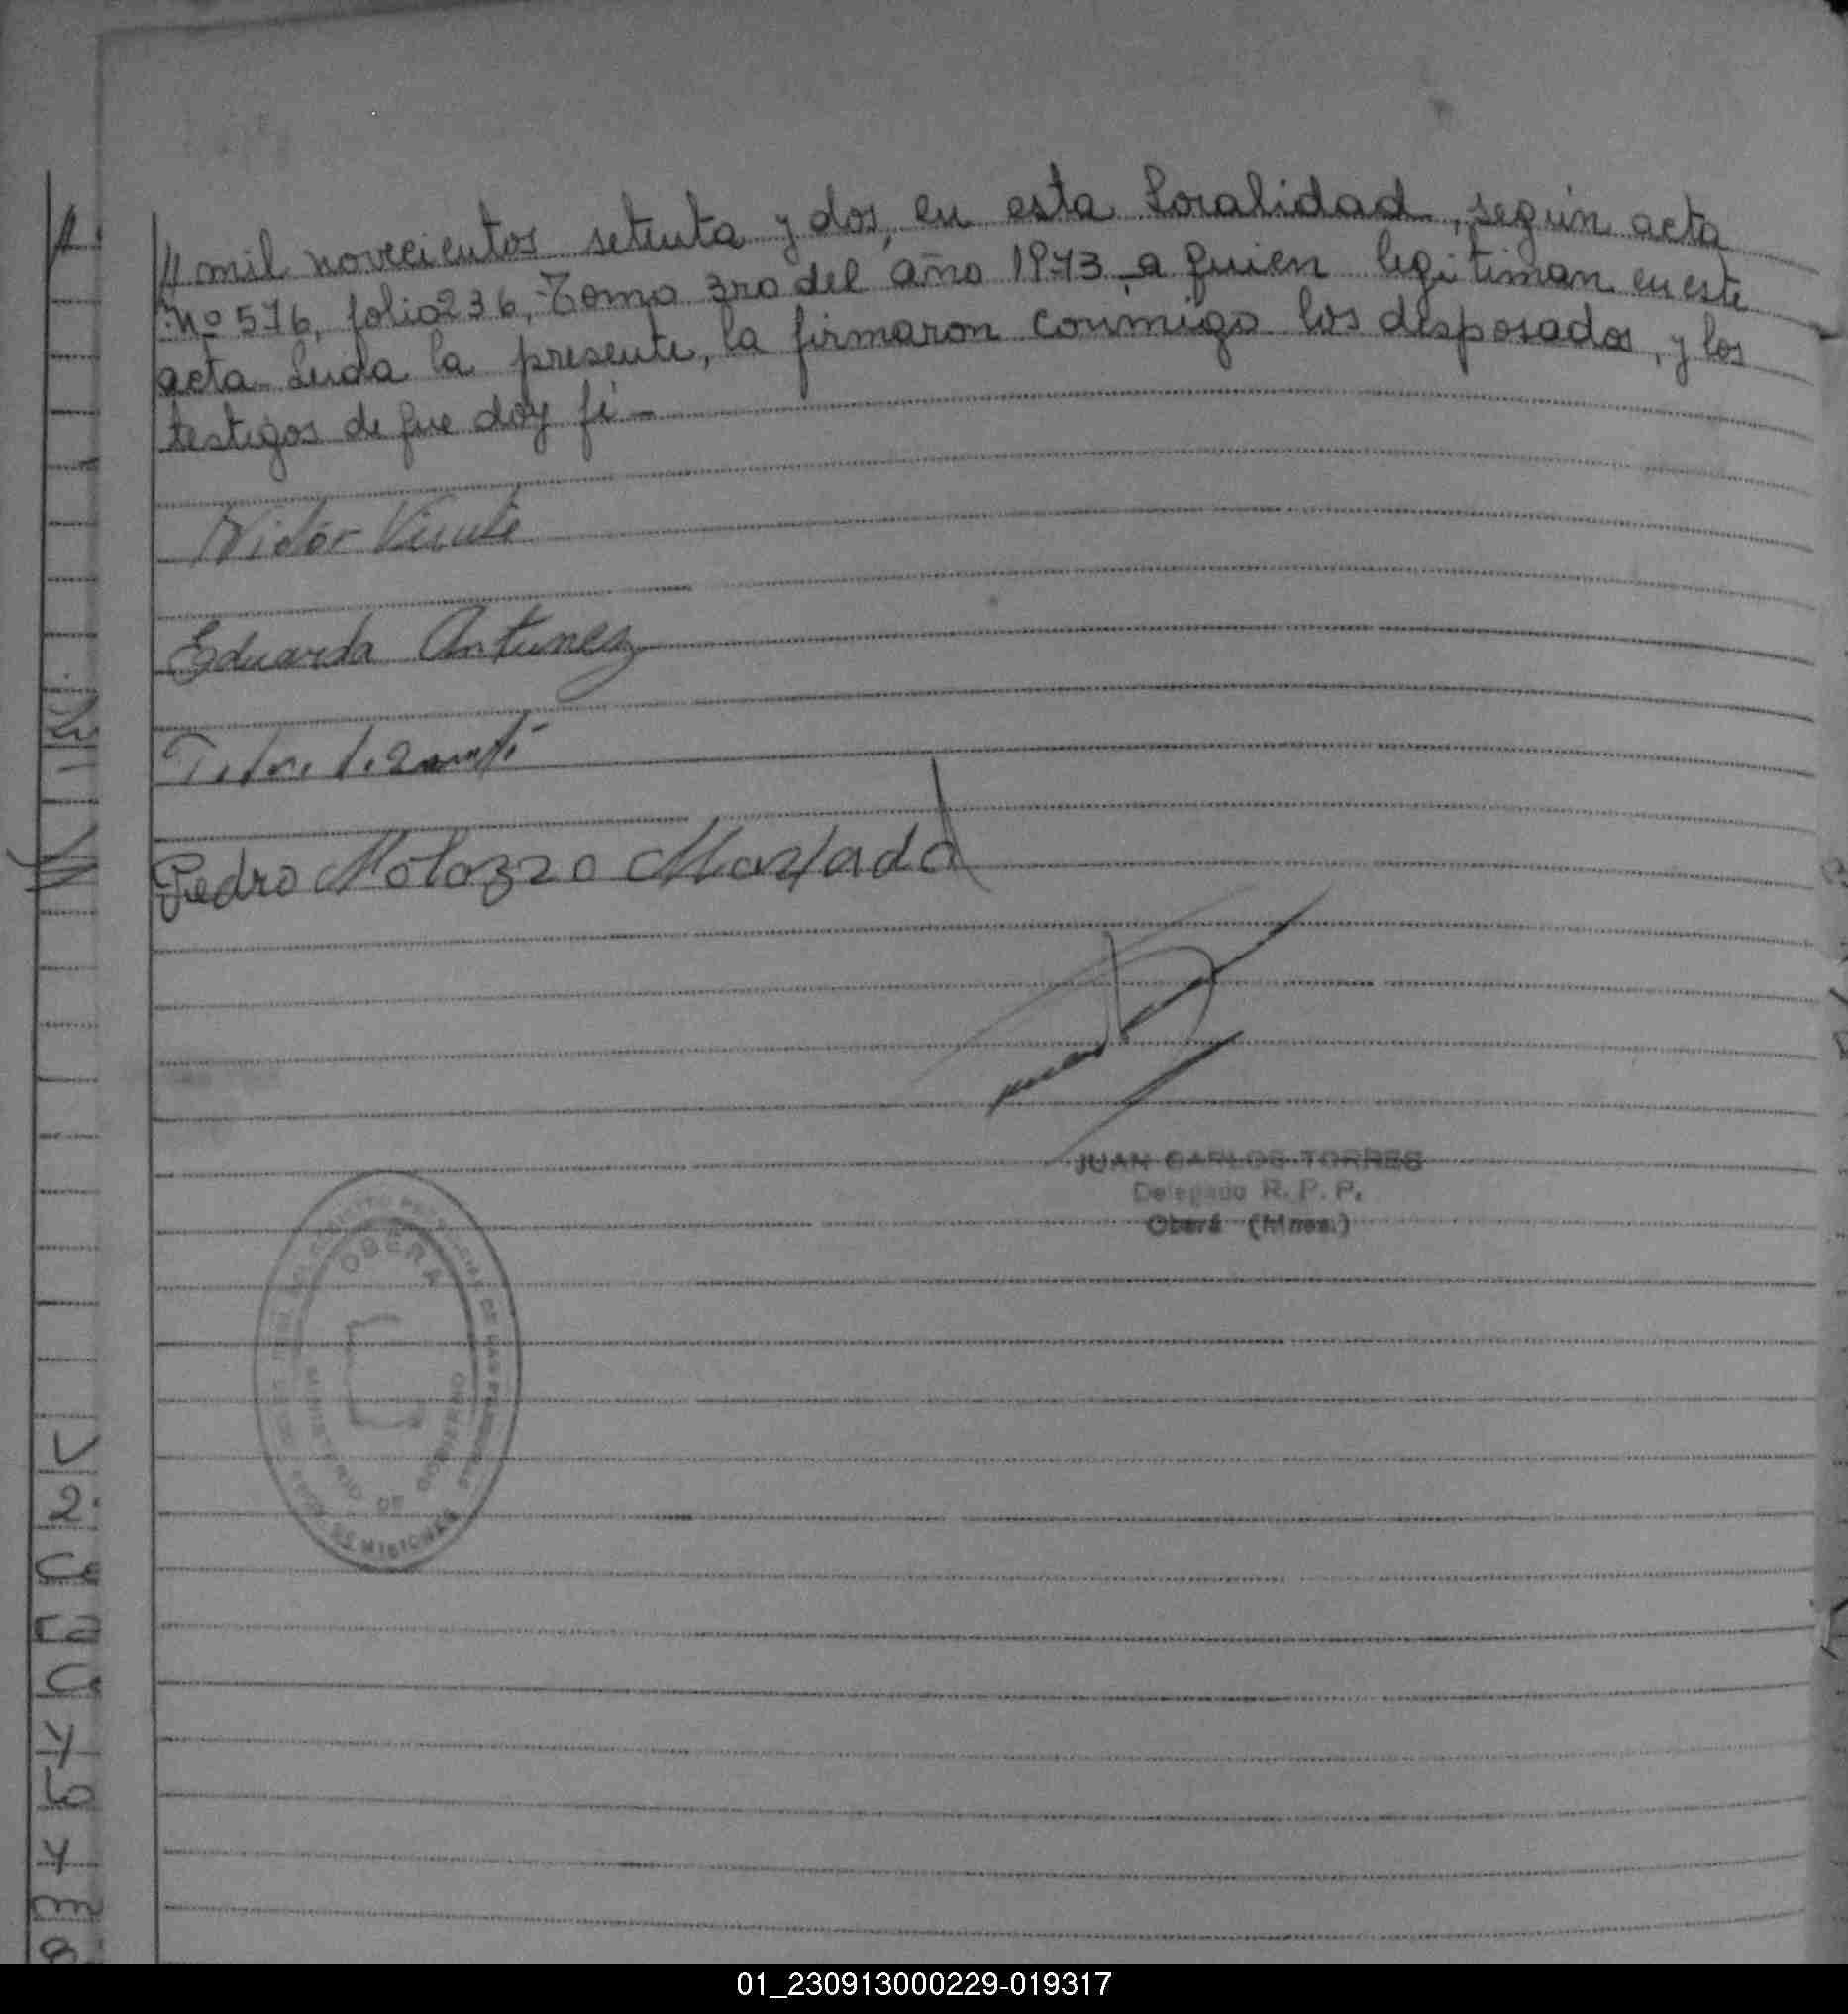 // mil novecientos setenta y dos, en esta Localidad, según acta
Nº 576, folio 236, Tomo 3ro del año 1973 a quien legitiman en este
acta. Leida la presente, la firmaron conmigo los desposados, y los
testigos de que doy fé -
Eduarda Antunez
Pedro Molozzo Machado
JUAN CARLOS TORRES
Delegado R. P. P.
Oberá (Mnes.)
OBERA
MINISTERIO DE GOBIERNO
DE MISIONES
01_230913000229-019317